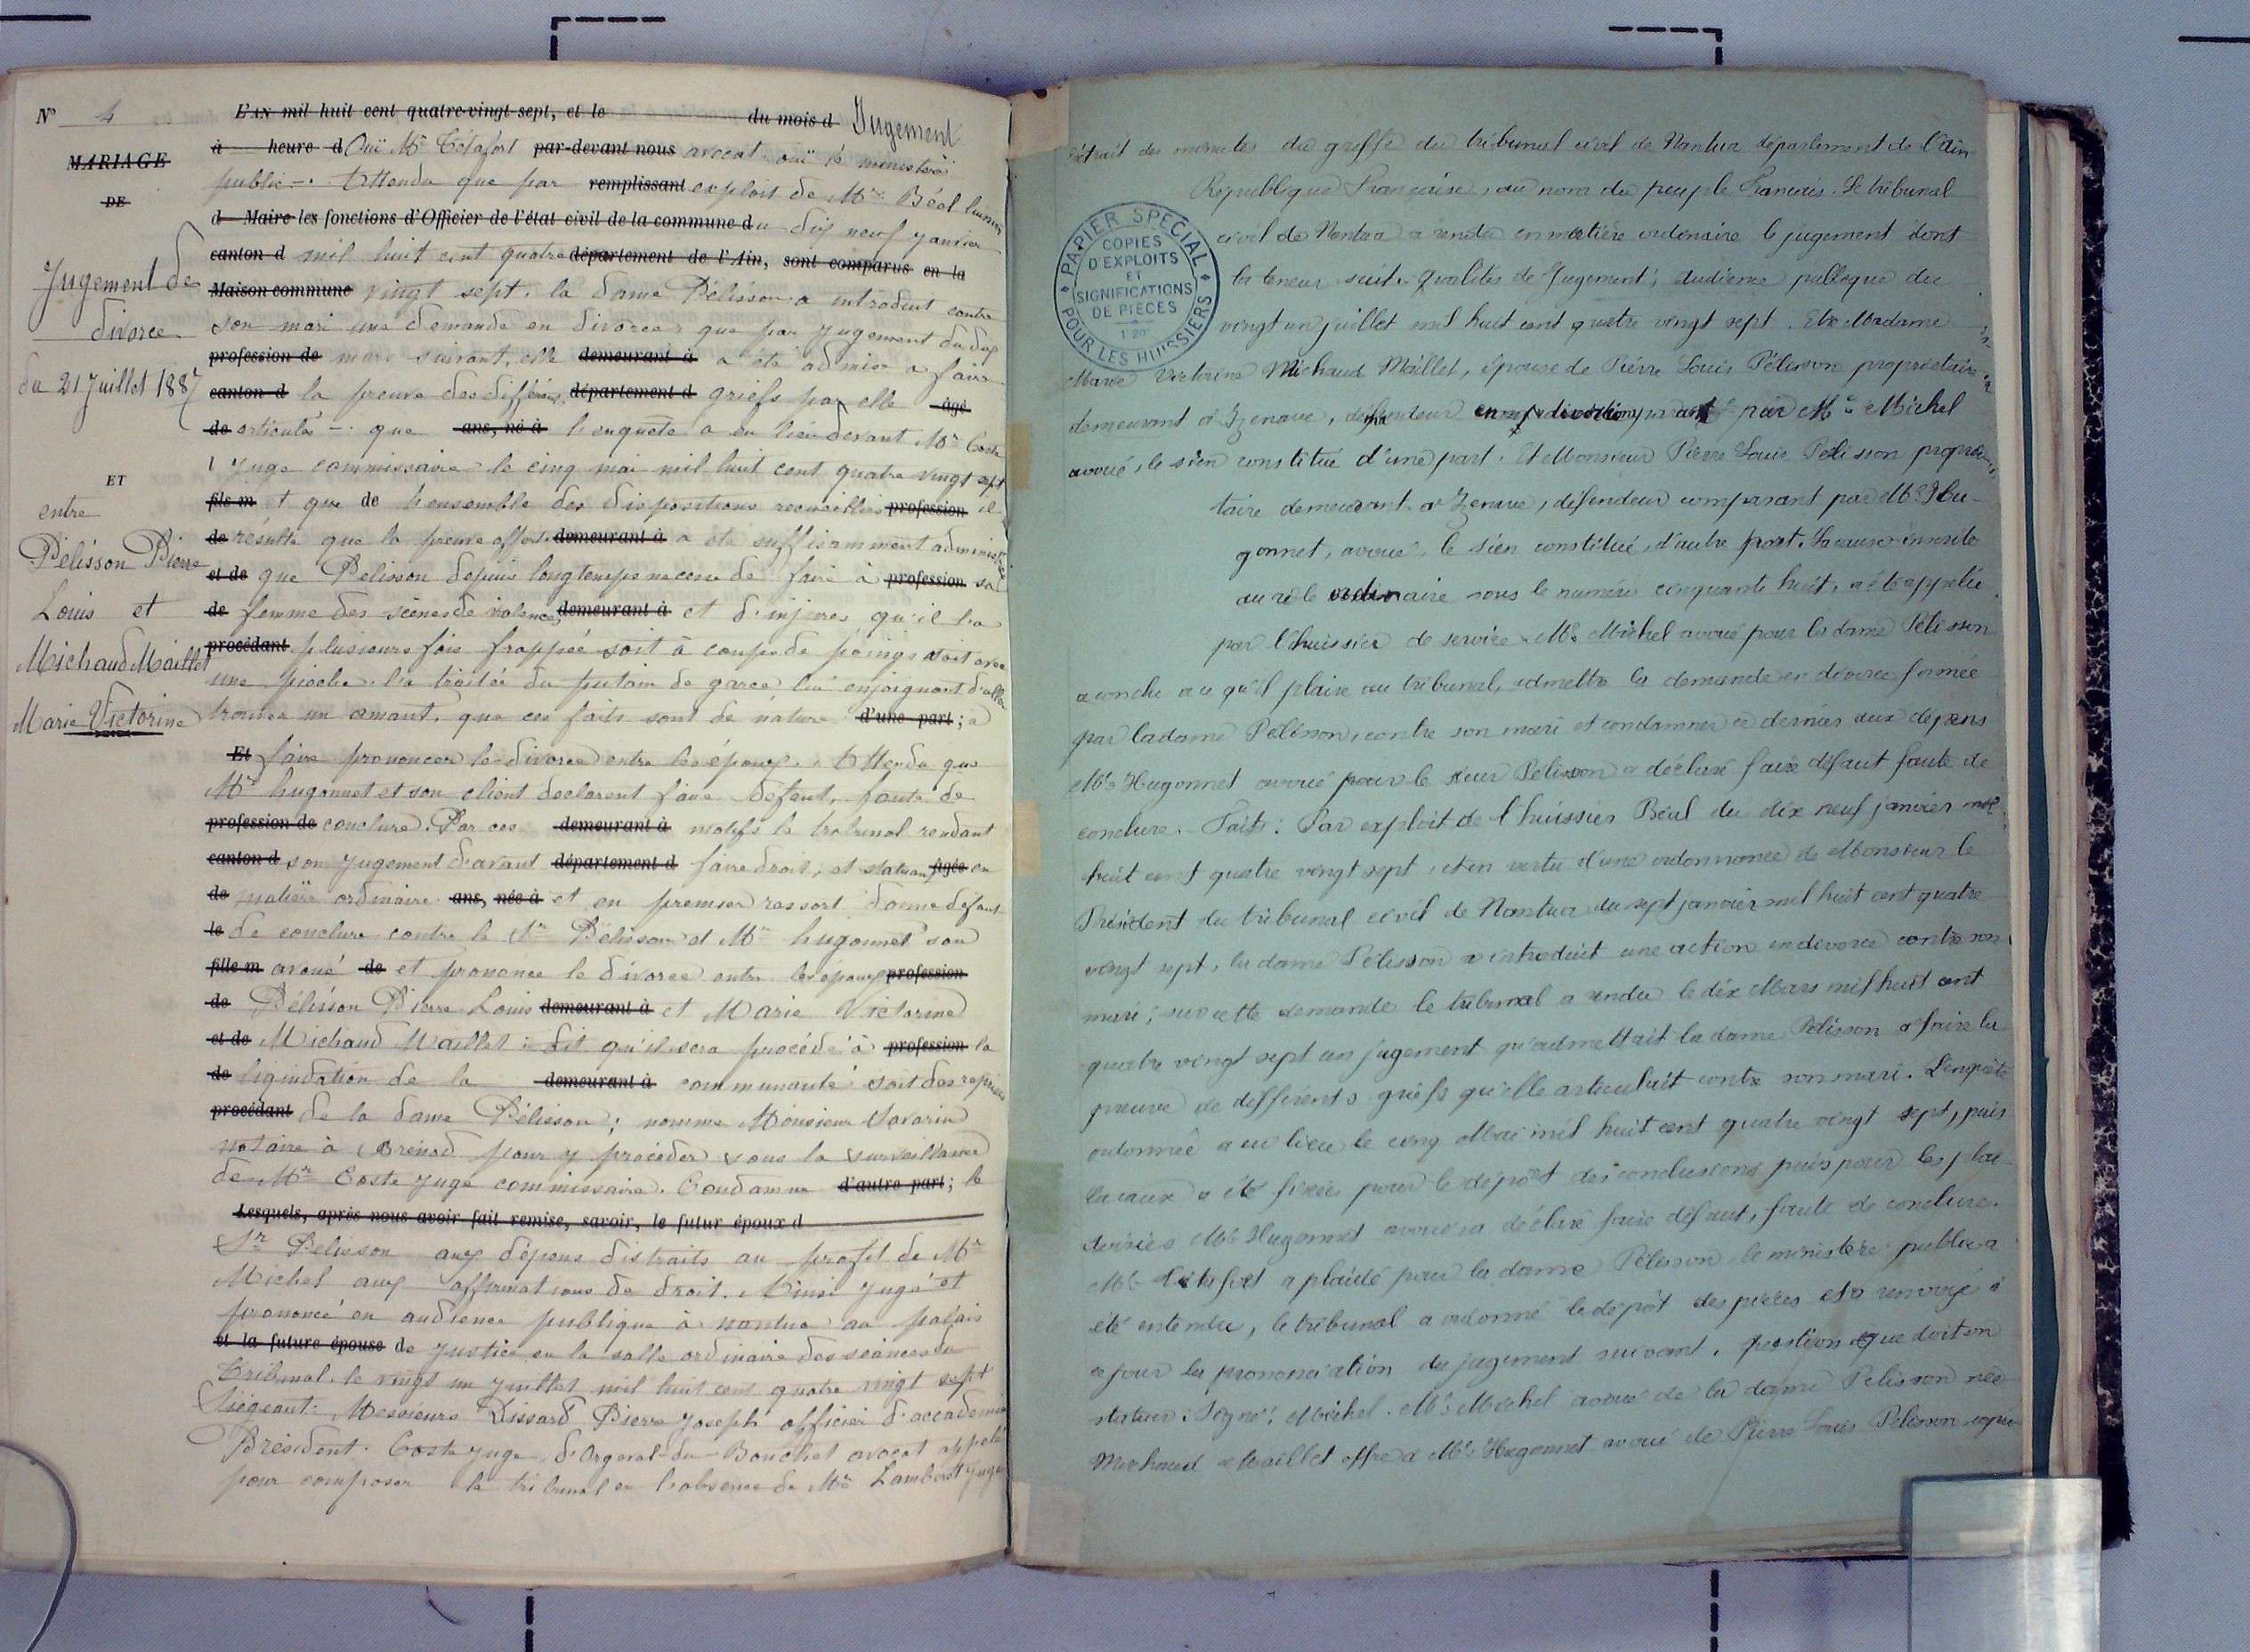 N° 4
MARIAGE
DE
Jugement de
divorce
du 21 Juillet 1887
ET
entre
Pélisson Pierre
Louis et
Michaud Maillet
Marie Victorine
L'AN mil huit cent quatre-vingt-sept, et le du mois d Jugement
à heure d Ouï Mr Tétafort par-devant nous avocat ouï le ministère
public. Attendu que par remplissant exploit de Mre Béol huissier
d Maire les fonctions d'Officier de l'état civil de la commune du dix neuf janvier
canton d mil huit cent quatre département de l'Ain, sont comparus en la
Maison commune vingt sept. la dame Pélisson a introduit contre
son mari une demande en divorce que par jugement du dix
profession de mars suivant, elle demeurant à a été admise a faire
canton d la preuve des différens département d griefs par elle âgé
de articulés - que ans, né à l'enquête a eu lieu devant Mr Coste
Juge commissaire le cinq mai mil huit cent quatre vingt sept
fils m et que de l'ensemble des dispositions recueillies profession il
de résulte que la preuve offerte demeurant à a été suffisamment administrée
et de que Pelisson depuis longtemps ne cesse de faire à profession sa
de femme des scènes de violence demeurant à et d'injures qu'il l'a
procédant plusieurs fois frappée soit à coups de poings soit avec
une pioche l'a traitée du putain de garce lui enjoignant d'aller
trouver un amant, que ces faits sont de nature d'une part; à
Et faire prononcer le divorce entre les époux. Attendu que
Mr hugonnet et son client declarent faire defaut, faute de
profession de conclure. Par ces demeurant à motifs le tribunal rendant
canton d son jugement d'avant département d faire droit; et statuant âgée en
de matière ordinaire ans, née à et en premier ressort donne défaut
le de conclure contre le Sr Pélisson et Mr hugonnet son
fille m avoué de et prononce le divorce entre les époux profession
de Pélisson Pierre Louis demeurant à et Marie Victorine
et de Michaud Maillet: dit qu'il sera procédé à profession la
de liquidation de la demeurant à communauté soit des reprises
procédant de la dame Pélisson; nomme Monsieur Savarin
notaire à Brénod pour y procéder sous la surveillance
de Mr Coste juge commissaire. Condamne d'autre part; le
Lesquels, après nous avoir fait remise, savoir, le futur époux d
Sr Pelisson aux dépens distraits au profit de Mr
Michel aux affirmations de droit. Ainsi jugé et
prononcé en audience publique à nantua au palais
et la future épouse de justice en la salle ordinaire des séances du
Tribunal le vingt un juillet mil huit cent quatre vingt sept
Siégeant: Messieurs Dissard Pierre Joseph officier d'accademie
Président. Coste juge, d'Orgeval-du-Bouchet avocat appelé
pour composer le tribunal en l'absence de Mr Lambert juge
Extrait des minutes du greffe du tribunal civil de Nantua département de l'Ain
République Française, au nom du peuple Francais. Le tribunal
civil de Nantua a rendu en matière ordinaire le jugement dont
la teneur suit. Qualités de Jugement; Audience publique du
vingt un juillet mil huit cent quatre vingt sept. Etre Madame
PAPIER SPÉCIAL
COPIES
D'EXPLOITS
ET
SIGNIFICATIONS
DE PIÈCES
POUR LES HUISSIERS
Marie Victorine Michaud Maillet, épouse de Pierre Louis Pélisson propriétaire
demeurant à Izenave, par Me Michel
avoué, le sien constitué d'une part. Et Monsieur Pierre Louis Pelisson proprié
taire demeurant à Izenave, défendeur comparant par Me Hu-
gonnet, avoué le sien constitué, d'autre part. La cause inscrite
au rôle ordinaire sous le numero cinquante huit, a été appelée
par l'huissier de service. Me Michel avoué pour la dame Pélisson
a conclu a ce qu'il plaise au tribunal, admettre la demande en divorce formée
par la dame Pélisson, contre son mari et condamner ce dernier aux dépens
Me Hugonnet avoué pour le sieur Pelisson a déclaré faire défaut faute de
conclure. Faits: Par exploit de l'huissier Béal du dix neuf janvier mil
huit cent quatre vingt sept, et en vertu d'une ordonnance de Monsieur le
Président du tribunal civil de Nantua du sept janvier mil huit cent quatre
vingt sept, la dame Pélisson a introduit une action en divorce contre son
mari; sur cette demande le tribunal a rendu le dix Mars mil huit cent
quatre vingt sept un jugement qu'admettait la dame Pelisson à faire la
preuve de differents griefs qu'elle articulait contre son mari. L'enquête
ordonnée a eu lieu le cinq Mai mil huit cent quatre vingt sept, puis
la cause a été fixée pour le dépôt des conclusions puis pour les plai-
doiries Me Hugonnet avoué a déclaré faire défaut, faute de conclure.
Me Tétafort a plaidé pour la dame Pélisson le ministère public a
été entendu, le tribunal a ordonné le dépôt des pièces et a renvoyé à
ce jour la prononciation du jugement suivant. question que doit on
statuer: Signé: Michel. Me Michel avoué de la dame Pelisson née
Michaud Maillet offre à Me Hugonnet avoué de Pierre Louis Pelisson copie